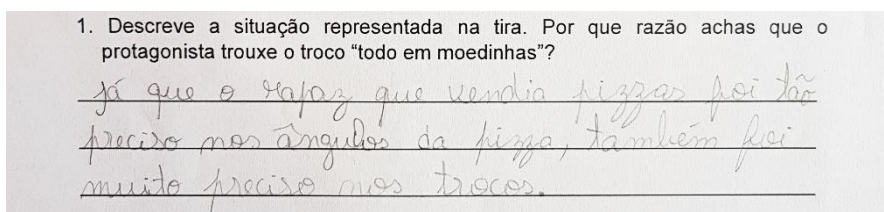 1. Descreve a situação representada na tira. Por que razão achas que o
protagonista trouxe o troco “todo em moedinhas”?
Já que o rapaz que vendia pizzas foi tão
preciso nos ângulos da pizza, também foi
muito preciso nos trocos.